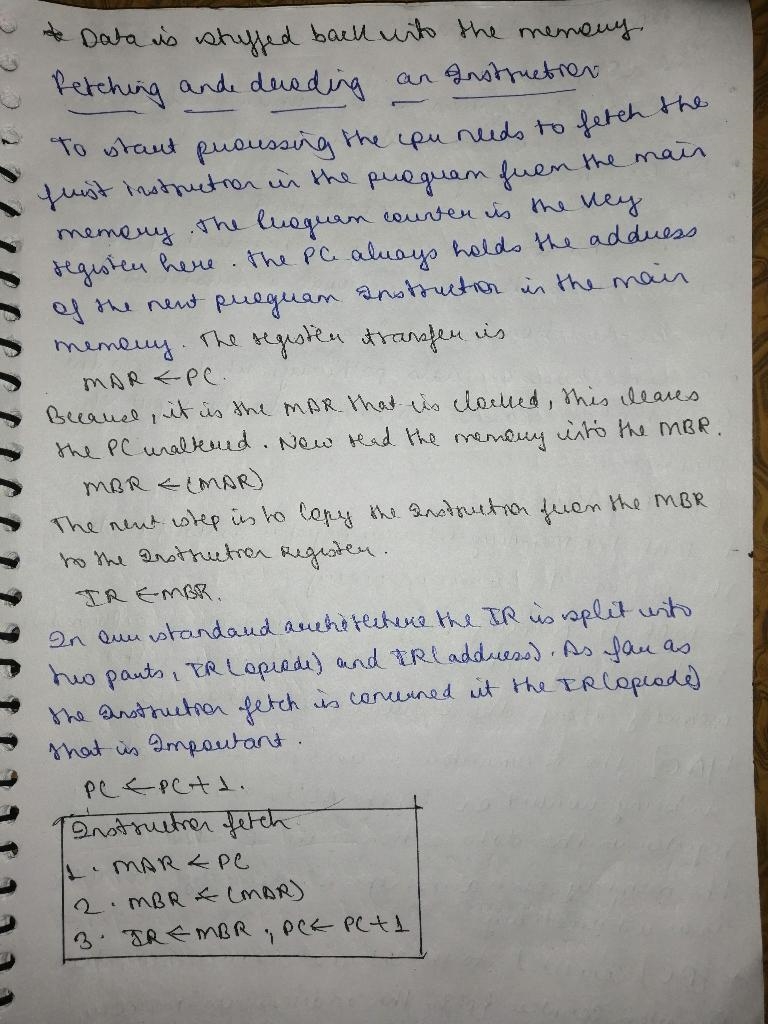 * Data is stuffed back into the memory.
Fetching and decoding an Instruction
To start processing the cpu needs to fetch the
first instruction in the program from the main
memory. The Program counter is the key
register here. The PC always holds the address
of the next program Instruction in the main
memory. The register transfer is
MAR ← PC.
Because, it is the MAR that is clocked, this leaves
the PC unaltered. Now read the memory into the MBR.
MBR ← (MAR)
The next step is to Copy the Instruction from the MBR
to the Instruction Register.
IR ← MBR.
In our standard architecture the IR is split into
two parts, IR (opcode) and IR (address). As far as
the Instruction fetch is concerned it the IR (opcode)
that is Important.
PC ← PC + 1.
Instruction fetch
1. MAR ← PC
2. MBR ← (MAR)
3. IR ← MBR ; PC ← PC + 1